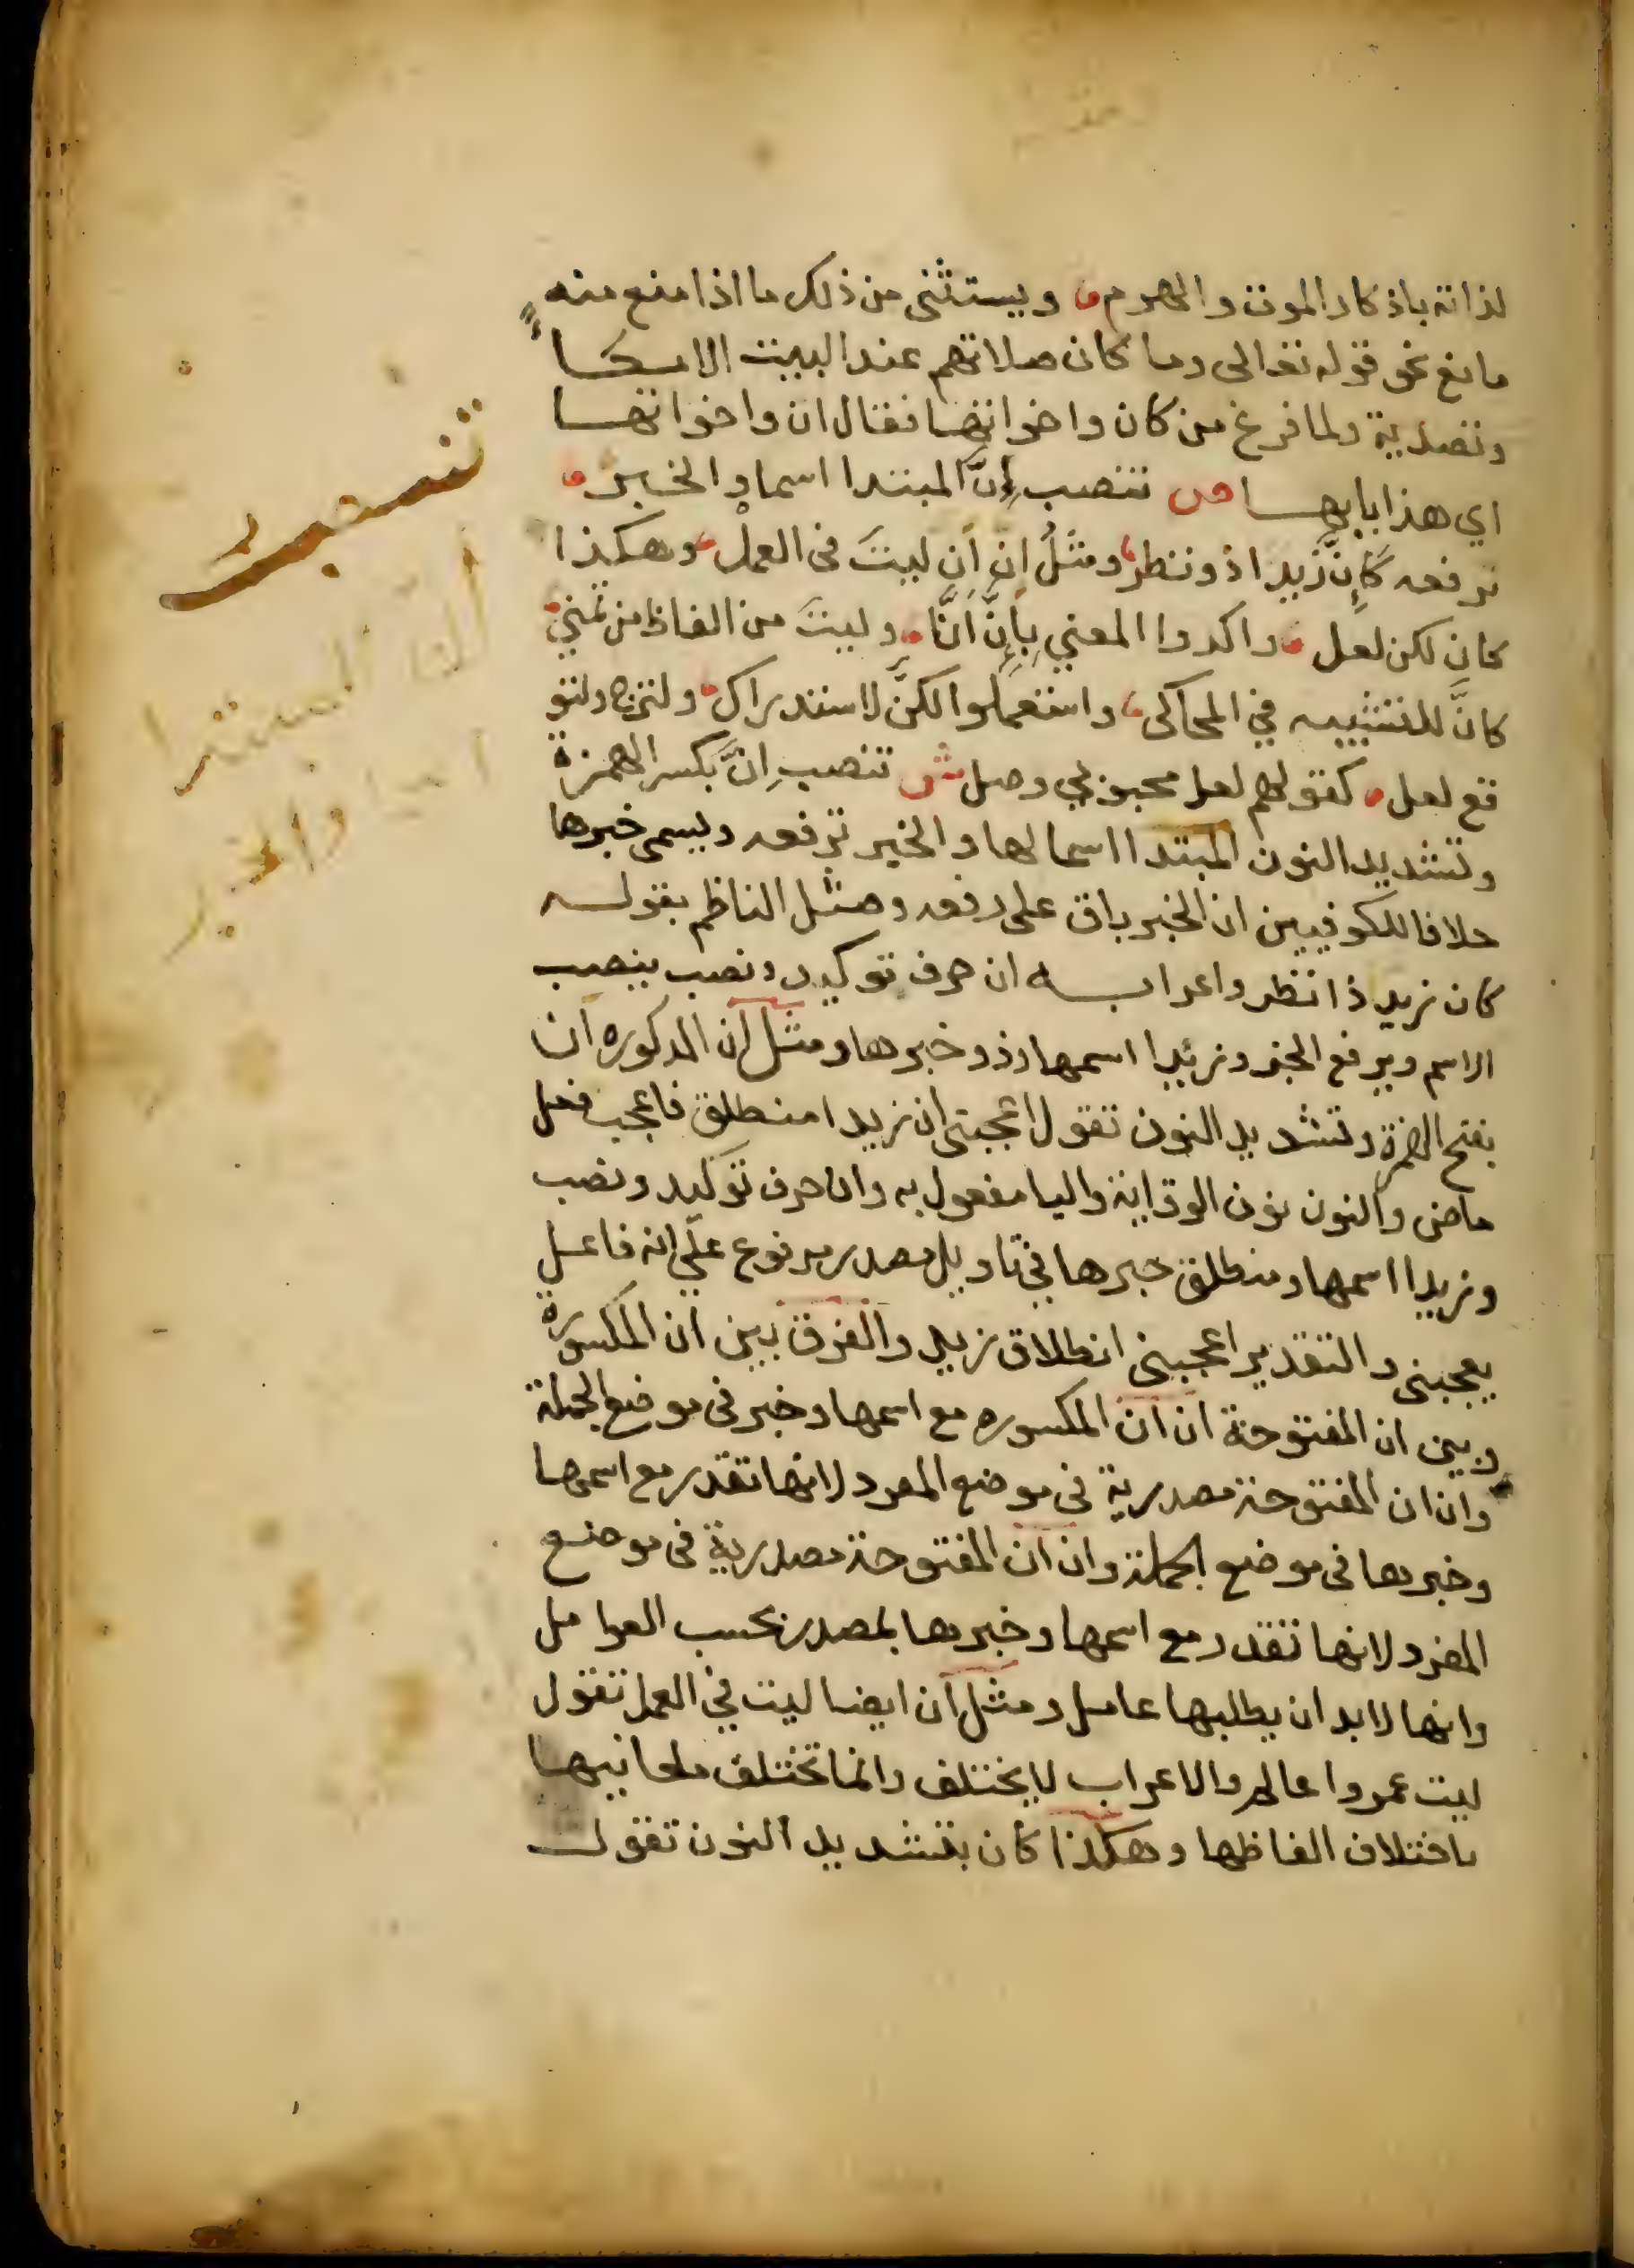 لذاته باذكار الموت والهرم ویستثنى من ذلك ما اذا منع منه
مانع نحو قوله تعالى وما كان صلاتهم عند البيت الا مكا
وتصدية ولما فرغ من كان واخواتها فقال ان واخواتها
اي هذا بابها ص تنصب إنّ المبتدا اسما والخبر
ترفعه كإنّ زيدا ذو نظر ومثلُ إن أن ليتَ في العمل وهكذا
كان لكن لعل واكدوا المعني بإِنَّ أنَّا وليتَ من الفاظ من تمني
كانَّ للتشبيه في المحاكى واستعملوا لكنَّ لاستدراك ولترج ولتو
قع لعل كقولهم لعل محبوبي وصل ش تنصب إنَّ بكسر الهمزة
وتشديد النون المبتدا اسما لها والخبر ترفعه ويسمى خبرها
خلافا للكوفيين ان الخبر باق على رفعه ومثل الناظم بقوله
كان زيد ذا نظر واعرابه ان حرف توكيد ونصب ينصب
الاسم ويرفع الخبر وزيدا اسمها وذو خبرها ومثل ان المدكوره ان
بفتح الهمزة وتشديد النون تقول اعجبنى ان زيدا منطلق فاعجب فعل
ماضى والنون نون الوقاية واليا مفعول به وان حرف توكيد ونصب
وزيدا اسمها ومنطلق خبرها في تاويل مصدر مرفوع علي انه فاعل
يعجبنى والتقدير اعجبنى انطلاق زيد والفرق بين ان المكسورة
وبين ان المفتوحة ان ان المكسوره مع اسمها وخبر فى موضع الجملة
وان ان المفتوحة مصدرية فى موضع المفرد لانها تقدر مع اسمها
وخبرها فى موضع الجملة وان ان المفتوحة مصدرية فى موضع
المفرد لانها تقدر مع اسمها وخبرها بمصدر بحسب العوامل
وانها لابد ان يطلبها عامل ومثل ان ايضا ليت في العمل تقول
ليت عمروا عالم والاعراب لا يختلف وانما تختلف معانيها
باختلاف الفاظها وهكذا كان بتشديد النون تقول
المبتدا